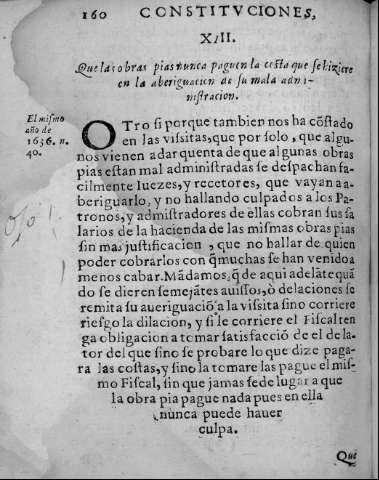 160 CONSTITVCIONES,
XIII.
Que las obras pias nunca paguen la costa que se hiziere
en la aberiguacion de su mala admi-
nistracion.
El mismo
año de
1636. n.
40.
OTro si porque tambien nos ha cõstado
en las vissitas, que por solo, que algu-
nos vienen a dar quenta de que algunas obras
pias estan mal administradas se despachan fa-
cilmente Iuezes, y recetores, que vayan a a-
beriguarlo, y no hallando culpados a los Pa-
tronos, y admistradores de ellas cobran sus sa
larios de la hacienda de las mismas obras pias
sin mas justificacion, que no hallar de quien
poder cobrarlos con q̃ muchas se han venido a
menos cabar. Mãdamos, q̃ de aqui adelãte quã
do se dieren semejãtes auissos, ò delaciones se
remita su aueriguaciõ a la vissita sino corriere
riesgo la dilacion, y si le corriere el Fiscal ten
ga obligacion a tomar satisfacció de el de la-
tor del que sino se probare lo que dize paga-
ra las costas, y sino la tomare las pague el mis-
mo Fiscal, sin que jamas se de lugar a que
la obra pia pague nada pues en ella
nunca puede hauer
culpa.
Que